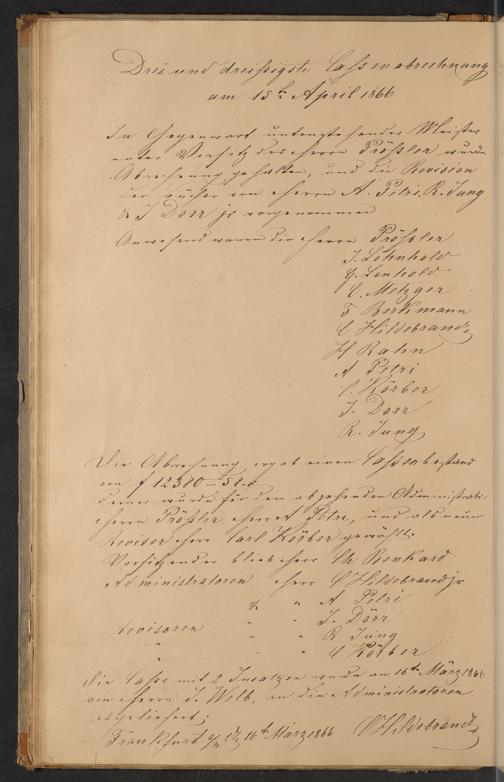 Drei und dreißigste Cassenabrechnung
am 15t April 1866
In Gegenwart untenstehender Meister
unter Vorsitz des Herrn Prößler wurde
Abrechnung gehalten, und die Revision
der Bücher von Herrn A. Petri, R. Jung
& J Dorr jr vorgenommen
Anwesend waren die Herrn Prößler
J. Löhnhold
G. Lenhold
C. Metzger
F Berkmann
C Hildebrandt
H Rahn
A Petri
C. Körber
J. Dorr
R. Jung
Die Abrechnung ergab einen Cassenbestand
von f 12380 58
Ferner wurde für den abgehenden Administrator
Herrn Prößler, Herr A Petri, und als neuer
Revisor Herr Carl Körber gewählt;
Vorsitzender blieb Herr Chr Benkard
Administratoren Herr C Hildebrand jr
" " A Petri
" " J. Dörr
Revisoren " " R Jung
" " " C Körber
Die Casse mit 2 wurde am 16ten März 1866
von Herrn J. Welb, an die Administratoren
abgeliefert;
Frankfurt a/M d 16t März 1866 C Hildebrandt